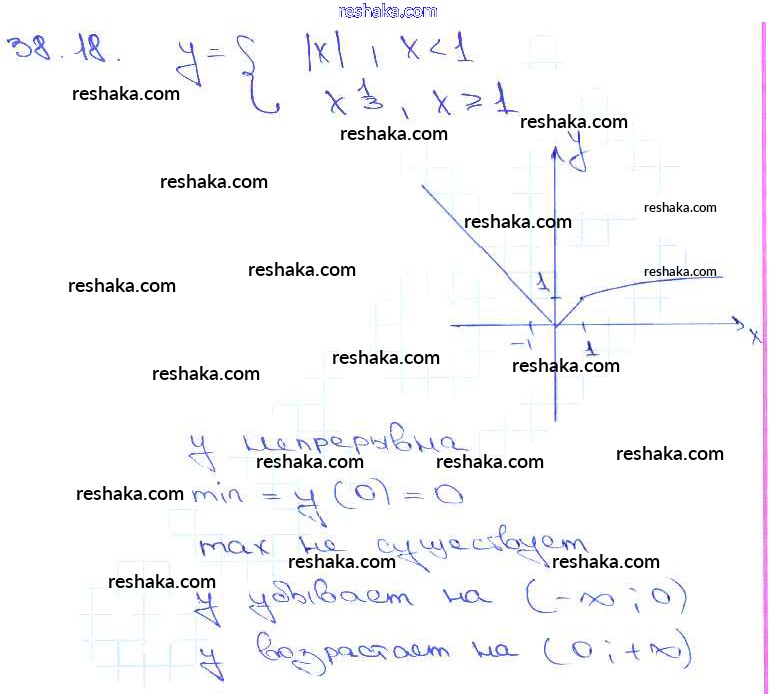 reshaka.com
38.18. y = { |x|, x < 1
x^{1/3}, x ≥ 1
reshaka.com
reshaka.com
reshaka.com
reshaka.com
y
reshaka.com
reshaka.com
reshaka.com
reshaka.com
reshaka.com
1
x
-1 1
reshaka.com
reshaka.com
reshaka.com
y непрерывна
reshaka.com
reshaka.com
reshaka.com
reshaka.com
min = y(0) = 0
max не существует
reshaka.com
reshaka.com
y убывает на (-∞; 0)
y возрастает на (0; +∞)